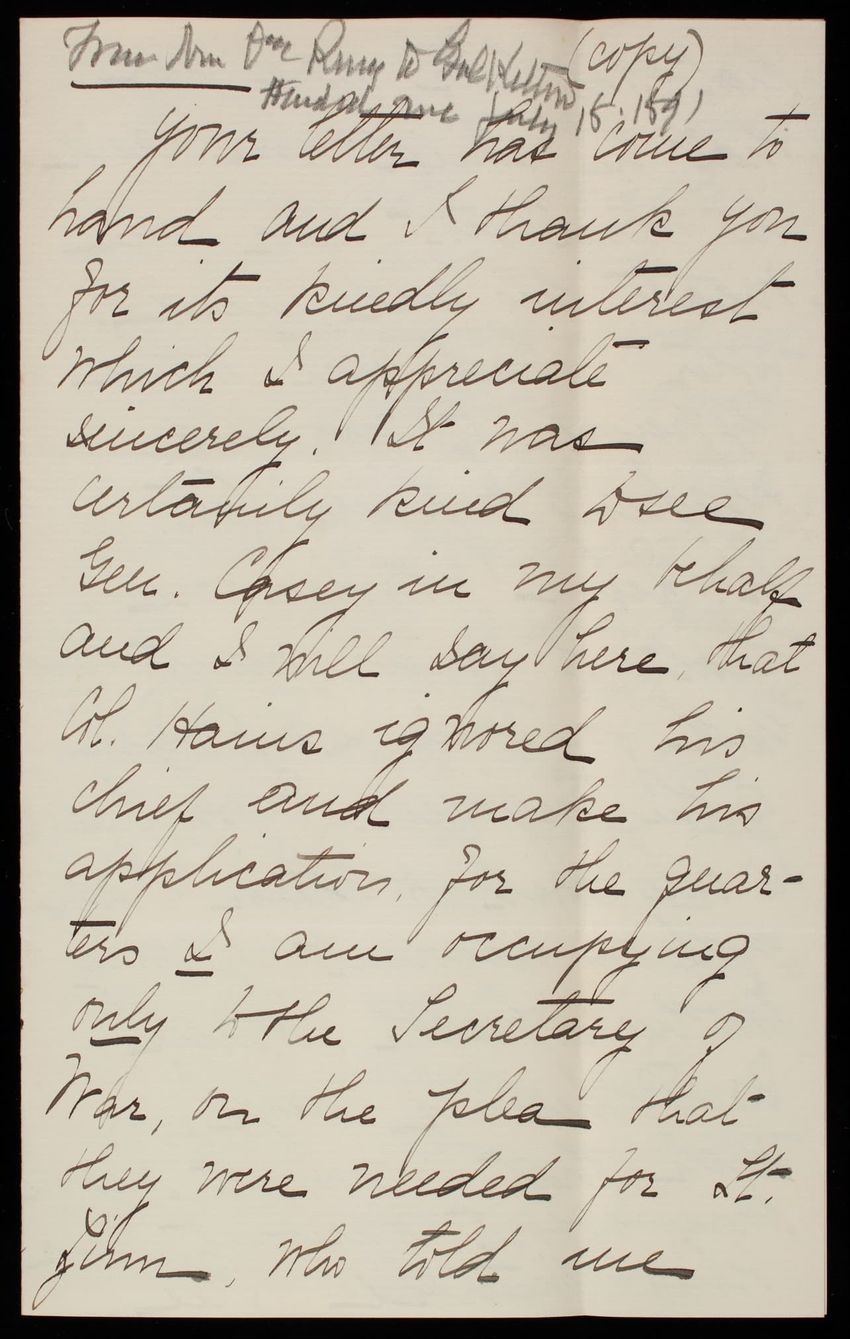 From Mrs to Gen Kelton (copy)
July 15. 1891
Your letter has come to
hand and I thank you
for its kindly interest
which I appreciate
sincerely. It was
certainly kind to see
Gen. Casey in my behalf
and I will say here, that
Col. Hains ignored his
chief and make his
application, for the quar-
ters I am occupying
only to the Secretary of
War, on the plea that
they were needed for Lt.
who told me